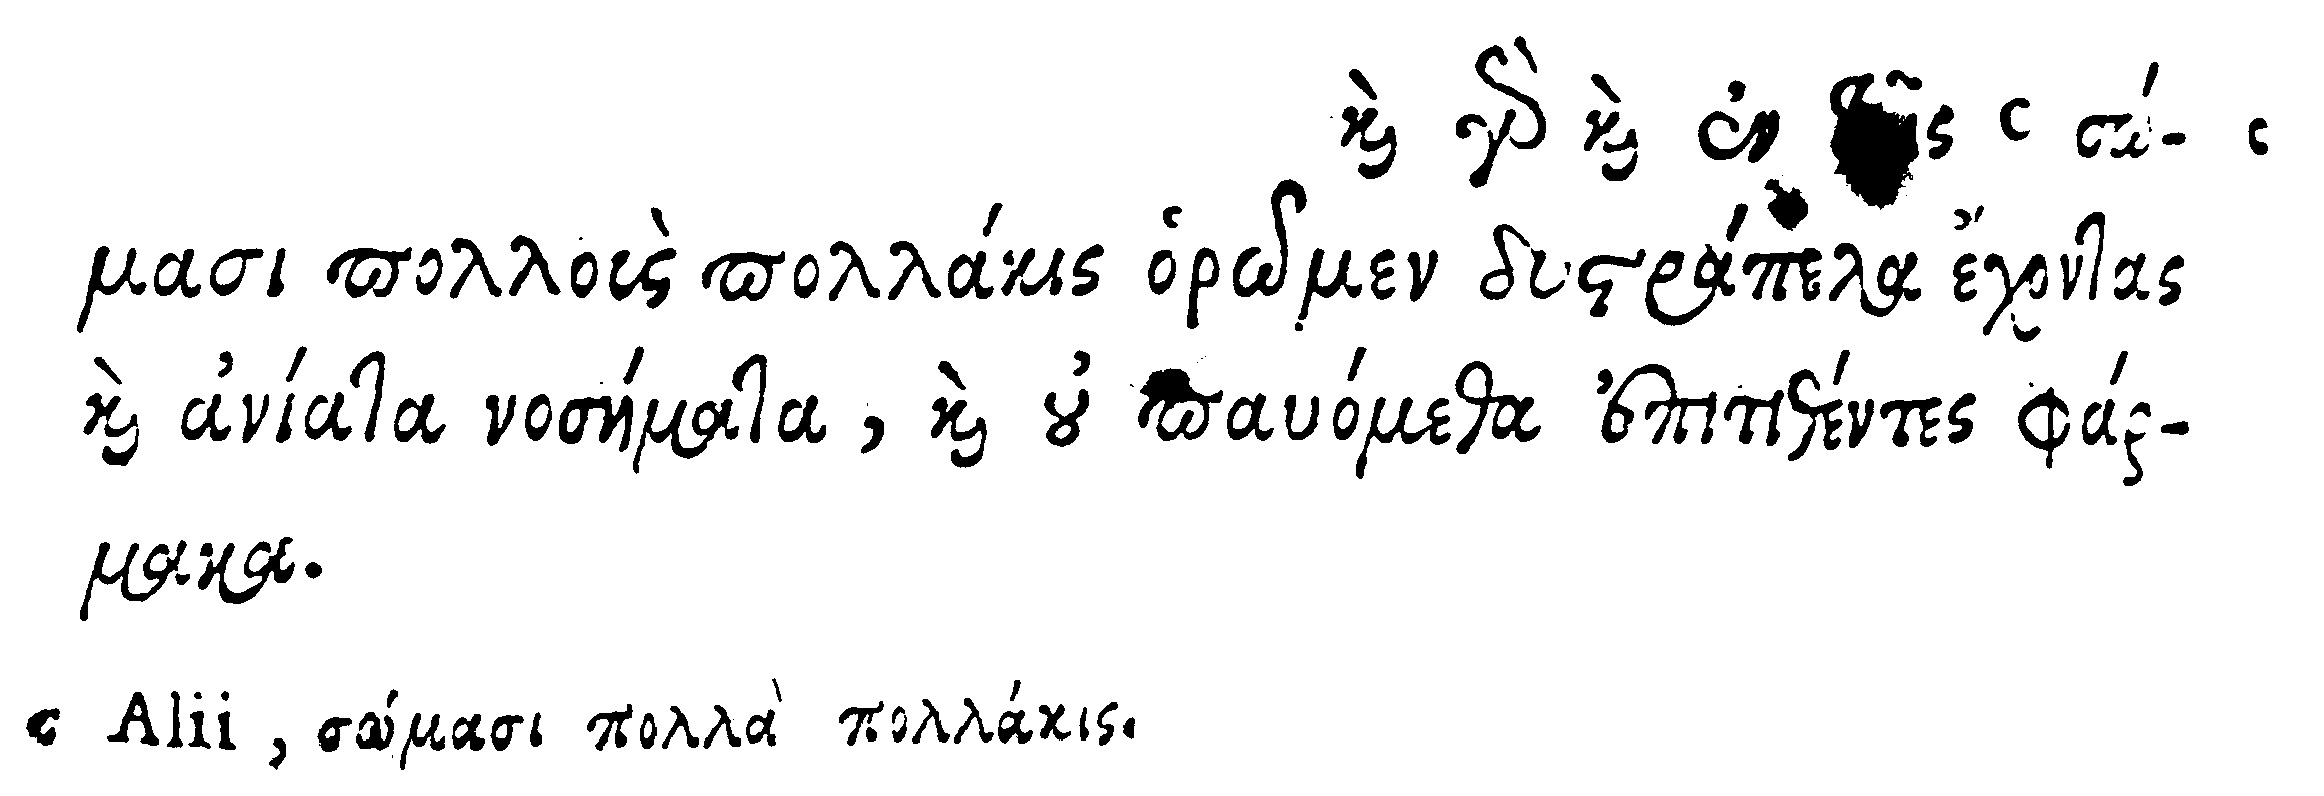 καὶ γὰρ καὶ ἐν τοῖς c σώ- c
μασι πολλοὺς πολλάκις ὁρῶμεν δυςράπελα ἔχοντας
καὶ ἀνίατα νοσήματα, καὶ οὐ παυόμεθα ἐπιτιθέντες φάρ-
μακα.
c Alii, σώμασι πολλὰ πολλάκις.